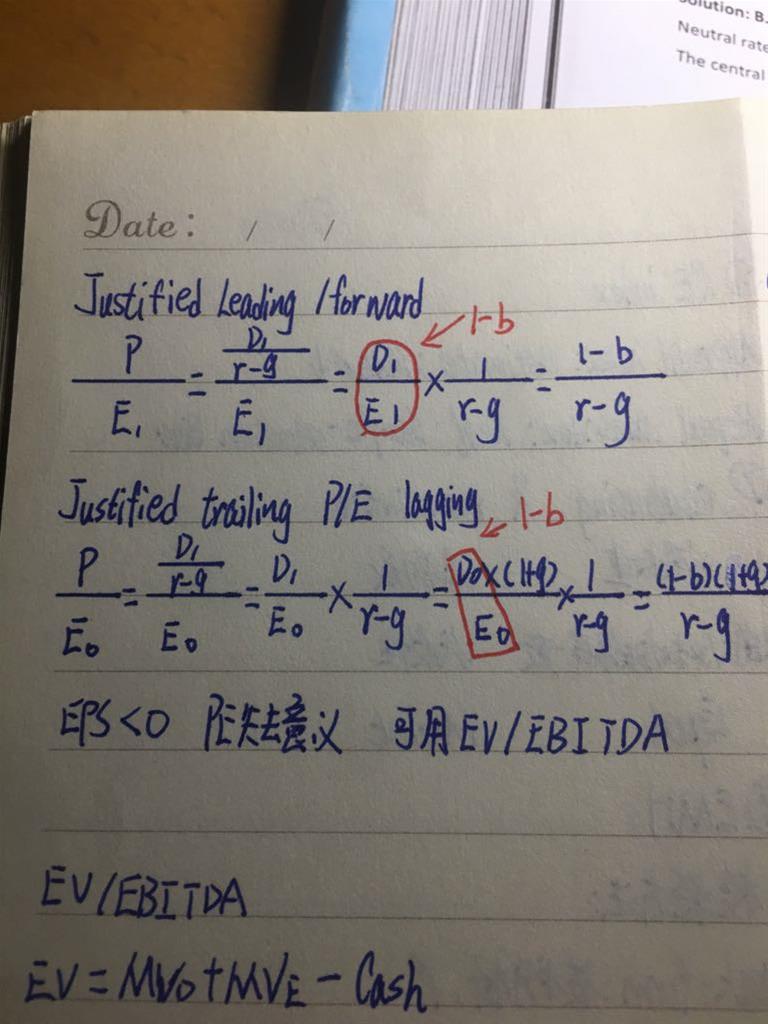 Solution: B.
Neutral rate
The central
Date: / /
Justified Leading / forward
1-b
P/E₁ = (D₁/(r-g))/E₁ = D₁/E₁ × 1/(r-g) = (1-b)/(r-g)
Justified trailing P/E lagging
1-b
P/E₀ = (D₁/(r-g))/E₀ = D₁/E₀ × 1/(r-g) = D₀×(1+g)/E₀ × 1/(r-g) = (1-b)(1+g)/(r-g)
EPS<0 PE失去意义 可用EV/EBITDA
EV/EBITDA
EV = MVD + MVE - Cash